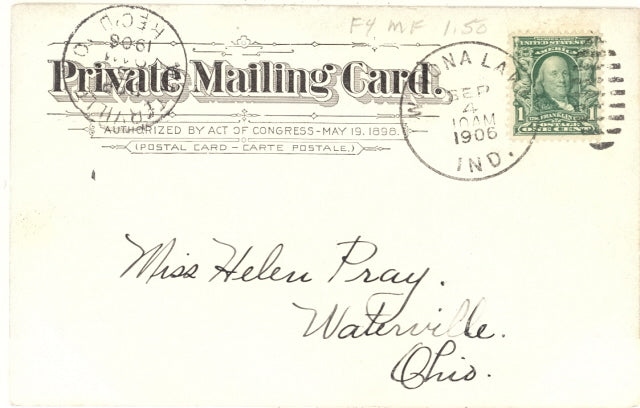 F4 MF 1.50
REC'D.
1906
Private Mailing Card.
AUTHORIZED BY ACT OF CONGRESS-MAY 19, 1898.
(POSTAL CARD – CARTE POSTALE.)
SEP
4
10AM
1906
IND.
UNITED STATES OF
AMERICA
FRANKLIN
1 1
POSTAGE
ONE CENT
Miss Helen Pray.
Waterville.
Ohio.